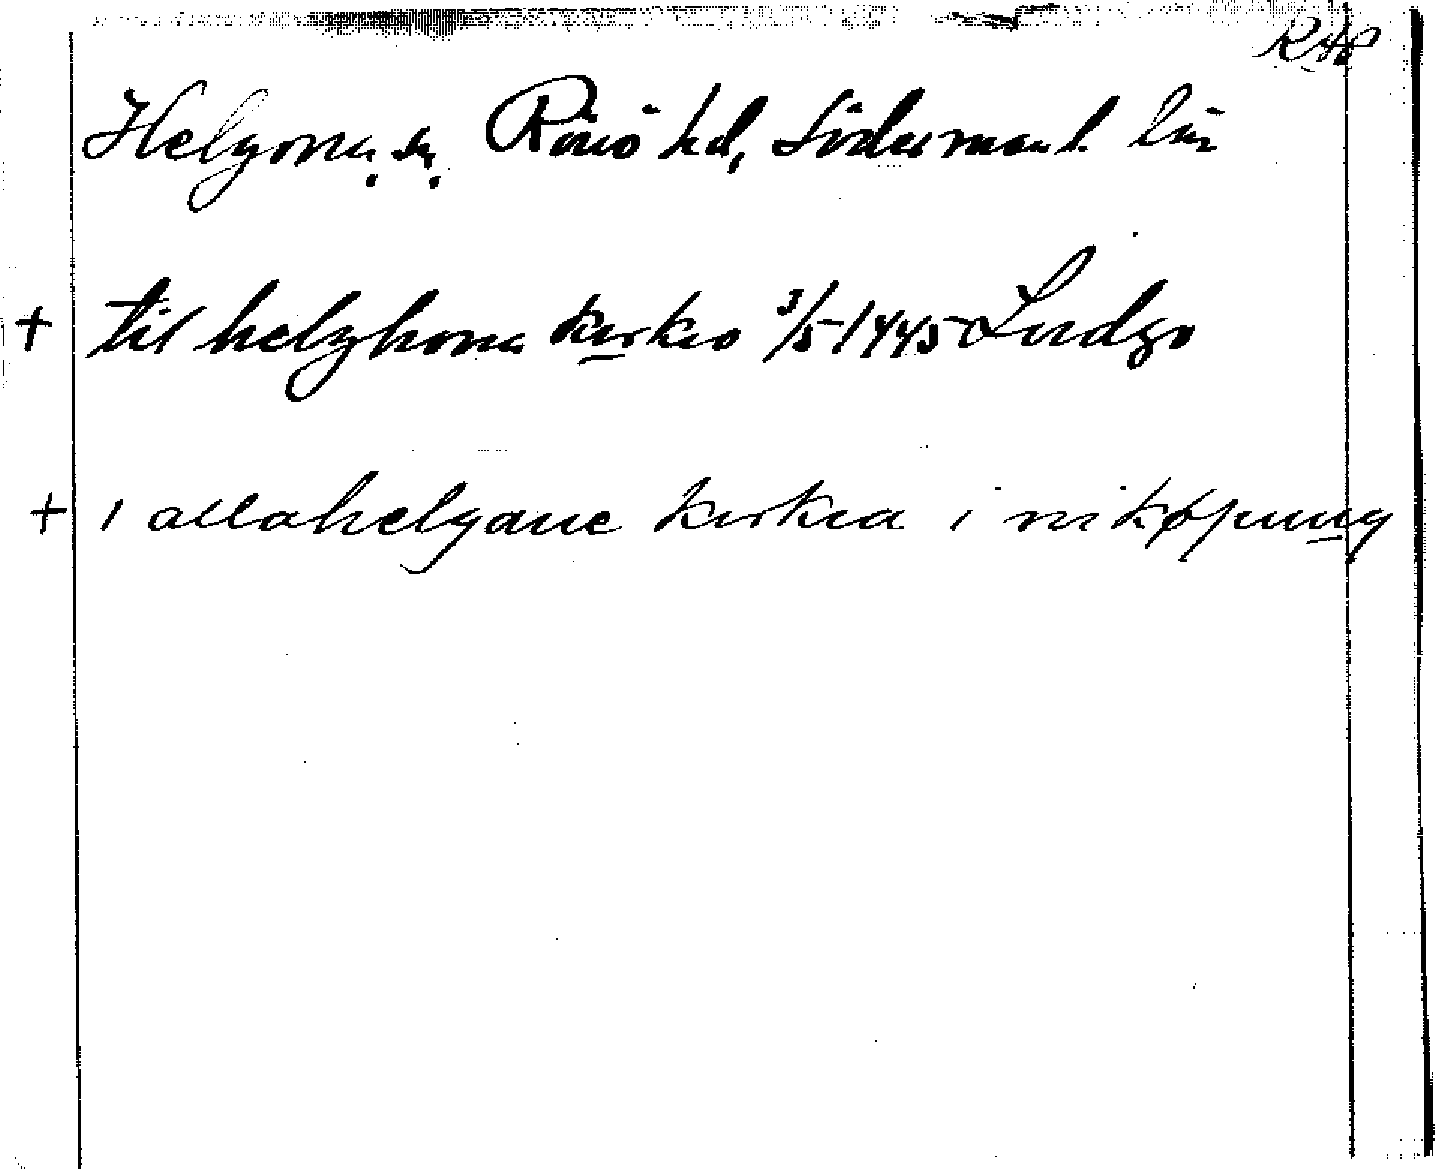 RAP
Helgona sn. Rönö hd, Södermanl. län
+ til helghona kirkio 3/5 1445 Ludgo
+ i allahelgane kirkia i niköpung